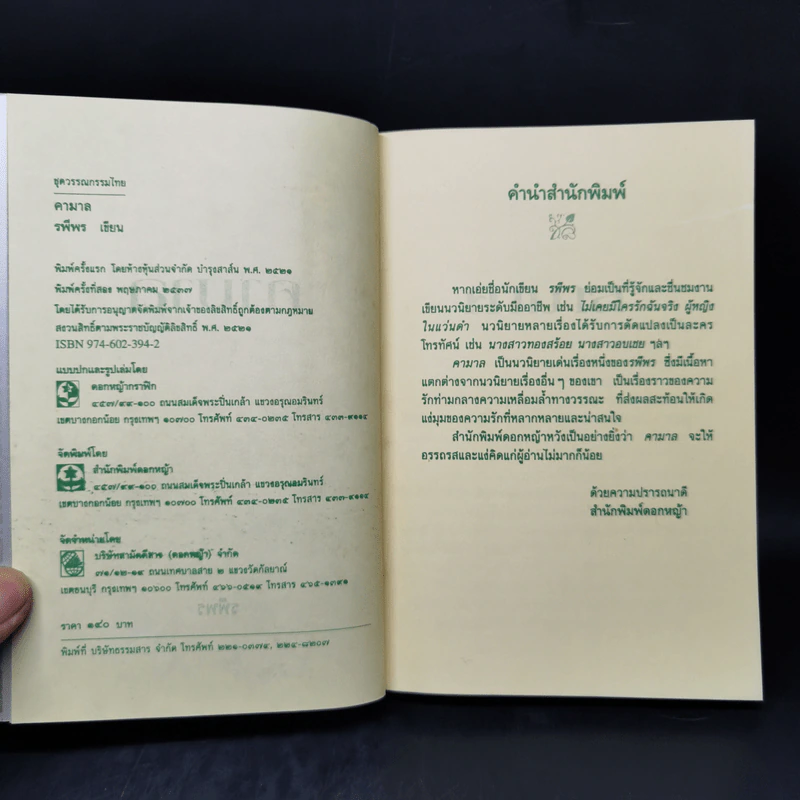 ชุดวรรณกรรมไทย
คามาล
รพีพร เขียน
พิมพ์ครั้งแรก โดยห้างหุ้นส่วนจำกัด บำรุงสาส์น พ.ศ. ๒๕๒๑
พิมพ์ครั้งที่สอง พฤษภาคม ๒๕๓๗
โดยได้รับการอนุญาตจัดพิมพ์จากเจ้าของลิขสิทธิ์ถูกต้องตามกฎหมาย
สงวนสิทธิ์ตามพระราชบัญญัติลิขสิทธิ์ พ.ศ. ๒๕๒๑
ISBN 974-602-394-2
แบบปกและรูปเล่มโดย
ดอกหญ้ากราฟิก
๔๕๗/๙๙-๑๐๐ ถนนสมเด็จพระปิ่นเกล้า แขวงอรุณอมรินทร์
เขตบางกอกน้อย กรุงเทพฯ ๑๐๗๐๐ โทรศัพท์ ๔๓๔-๐๒๓๕ โทรสาร ๔๓๓-๙๑๑๔
จัดพิมพ์โดย
สำนักพิมพ์ดอกหญ้า
๔๕๗/๙๙-๑๐๐ ถนนสมเด็จพระปิ่นเกล้า แขวงอรุณอมรินทร์
เขตบางกอกน้อย กรุงเทพฯ ๑๐๗๐๐ โทรศัพท์ ๔๓๔-๐๒๓๕ โทรสาร ๔๓๓-๙๑๑๔
จัดจำหน่ายโดย
บริษัทสามัคคีสาร (ดอกหญ้า) จำกัด
๗๑/๑๒-๑๔ ถนนเทศบาลสาย ๒ แขวงวัดกัลยาณ์
เขตธนบุรี กรุงเทพฯ ๑๐๖๐๐ โทรศัพท์ ๔๖๖-๐๕๑๔ โทรสาร ๔๖๕-๑๓๙๑
ราคา ๑๔๐ บาท
พิมพ์ที่ บริษัทธรรมสาร จำกัด โทรศัพท์ ๒๒๑-๐๓๗๔, ๒๒๔-๘๒๐๗
คำนำสำนักพิมพ์
หากเอ่ยชื่อนักเขียน รพีพร ย่อมเป็นที่รู้จักและชื่นชมงาน
เขียนนวนิยายระดับมืออาชีพ เช่น ไม่เคยมีใครรักฉันจริง ผู้หญิง
ในแว่นดำ นวนิยายหลายเรื่องได้รับการดัดแปลงเป็นละคร
โทรทัศน์ เช่น นางสาวทองสร้อย นางสาวอบเชย ฯลฯ
คามาล เป็นนวนิยายเด่นเรื่องหนึ่งของรพีพร ซึ่งมีเนื้อหา
แตกต่างจากนวนิยายเรื่องอื่นๆ ของเขา เป็นเรื่องราวของความ
รักท่ามกลางความเหลื่อมล้ำทางวรรณะ ที่ส่งผลสะท้อนให้เกิด
แง่มุมของความรักที่หลากหลายและน่าสนใจ
สำนักพิมพ์ดอกหญ้าหวังเป็นอย่างยิ่งว่า คามาล จะให้
อรรถรสและแง่คิดแก่ผู้อ่านไม่มากก็น้อย
ด้วยความปรารถนาดี
สำนักพิมพ์ดอกหญ้า